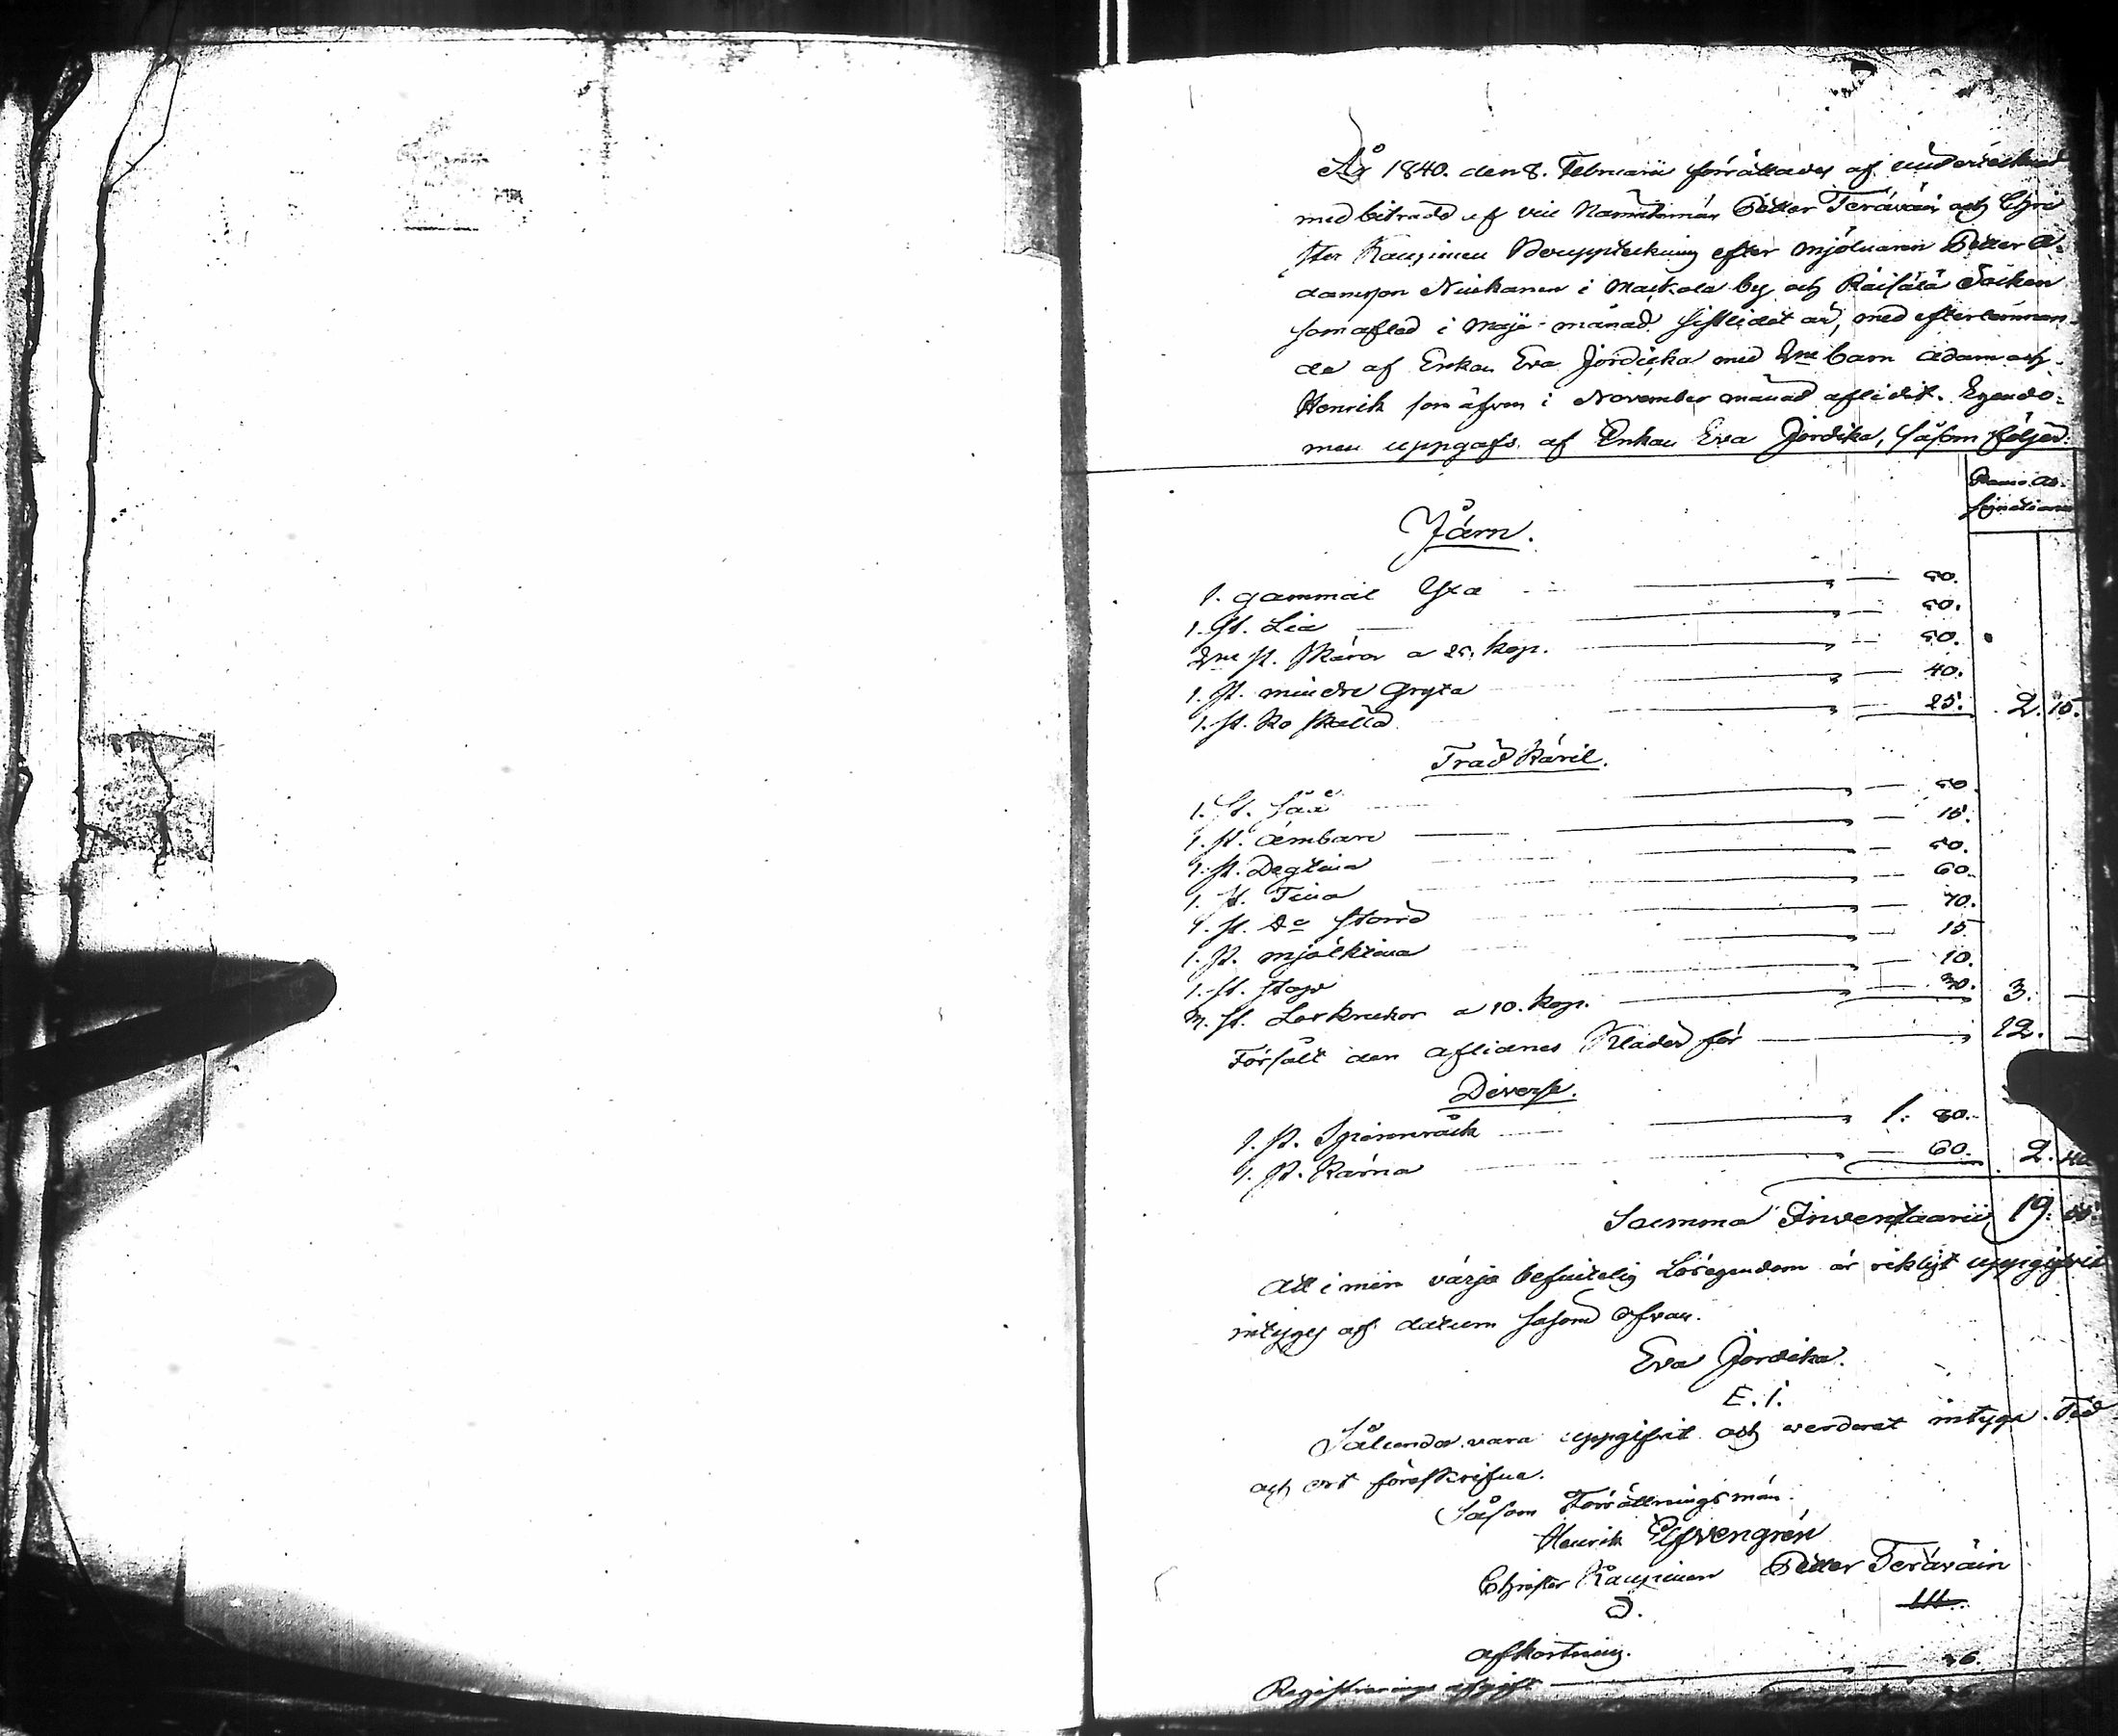 År 1840. den 8. Februarii förrättades af undertecknad
med biträde af vice Nämndemän Petter Teräväin och Chri
ster Kaupinen Bouppteckning efter mjölnaren Petter A-
damsson Niukanen i Mackola by och Räisälä Socken
som afled i Maji månad sistledet år, med efterlämnan-
de af Enkan Eva Jördicka med 2ne barn Adam och
Henrik som äfven i November månad aflidit. Egendo-
men uppgafs af Enkan Eva Jördika, såsom följer:
Banco As-
signationer
Järn.
1. gammal Yxa 50.
1. st. Lia 50.
2ne st. skäror a 25. kop. 50.
1. st. mindre Gryta 40.
1. st. Ko skälla 25. 2. 15.
Träd Käril.
1. st. så 50
1. st. Ämbare 15.
1. st. Degtina 50.
1. st. Tina 60.
1. st. do större 70.
1. st. mjölktina 15
1. st. stop 10.
3. st. krukor a 10. kop. 30. 3. —
Försålt den aflidnes Kläder för 12. —
Diverse.
1. st. Spinnråck 1: 80.
1. st. Kärna 60. 2. 40
Summa Inventaarii 19: 55.
Att i min värjo befintelig Lösegendom är riktigt uppgifvit
intygas af datum såsom ofvan.
Eva Jördika.
E. I.
Sålunda vara uppgifvit och värderat intyga. Tid
och ort föreskrifne.
Såsom Förrättningsmän.
Henrik Elfvengrén
Christer Kaupinen Petter Teräväin
afkortning.
Registrerings afgift 36.